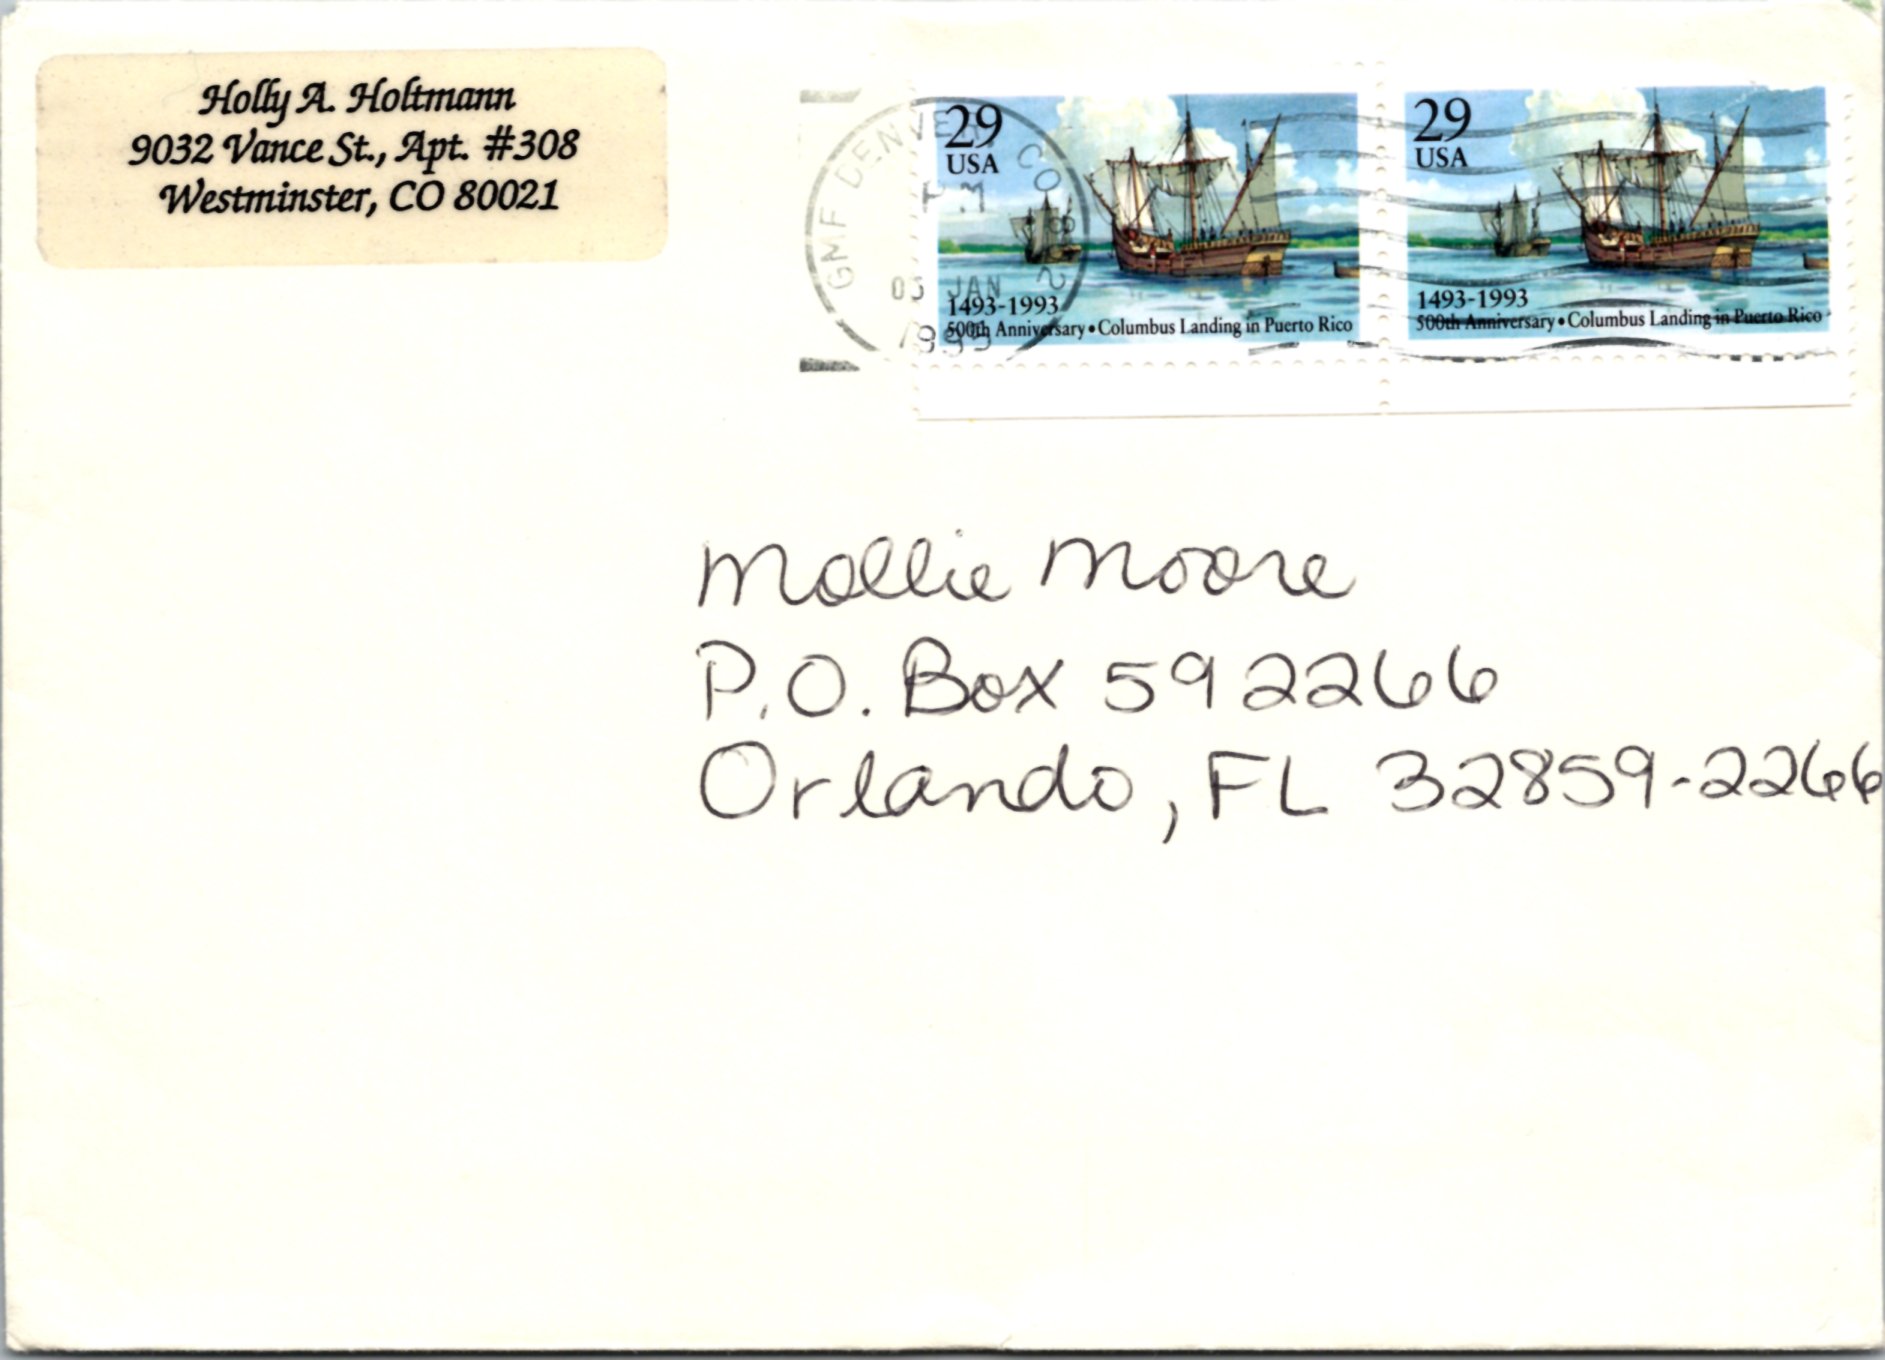 Holly A. Holtmann
9032 Vance St., Apt. #308
Westminster, CO 80021
GMF DENVER CO 802
PM
JAN
29
USA
1493-1993
500th Anniversary • Columbus Landing in Puerto Rico
29
USA
1493-1993
500th Anniversary • Columbus Landing in Puerto Rico
Mollie Moore
P.O. Box 592266
Orlando, FL 32859-2266